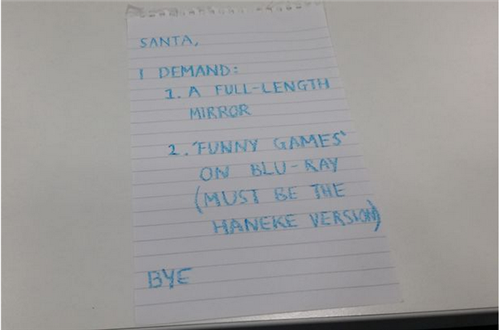 SANTA,
I DEMAND:
1. A FULL-LENGTH
MIRROR
2. 'FUNNY GAMES'
ON BLU-RAY
(MUST BE THE
HANEKE VERSION)
BYE